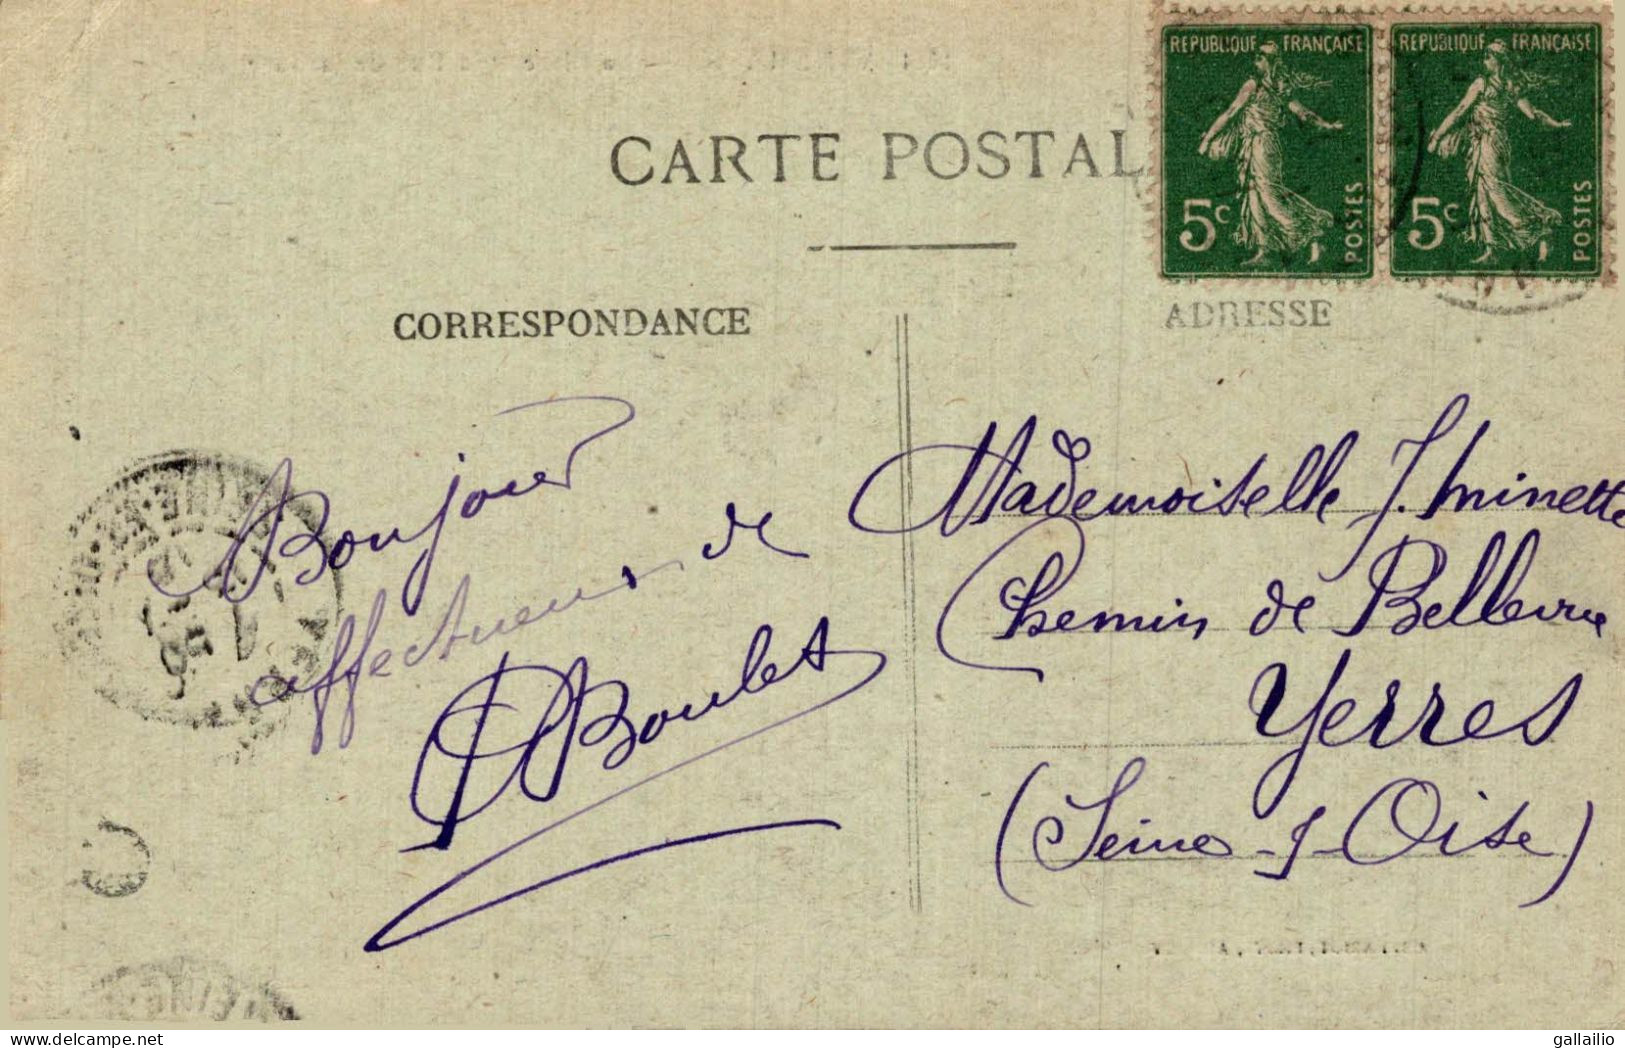 REPUBLIQUE FRANÇAISE
5c
POSTES
REPUBLIQUE FRANÇAISE
5c
POSTES
CARTE POSTAL
CORRESPONDANCE
ADRESSE
Bonjour
affectueux de
Boulet
Mademoiselle J. Minette
Chemin de Bellevue
Yerres
(Seine-&-Oise)
gallailio